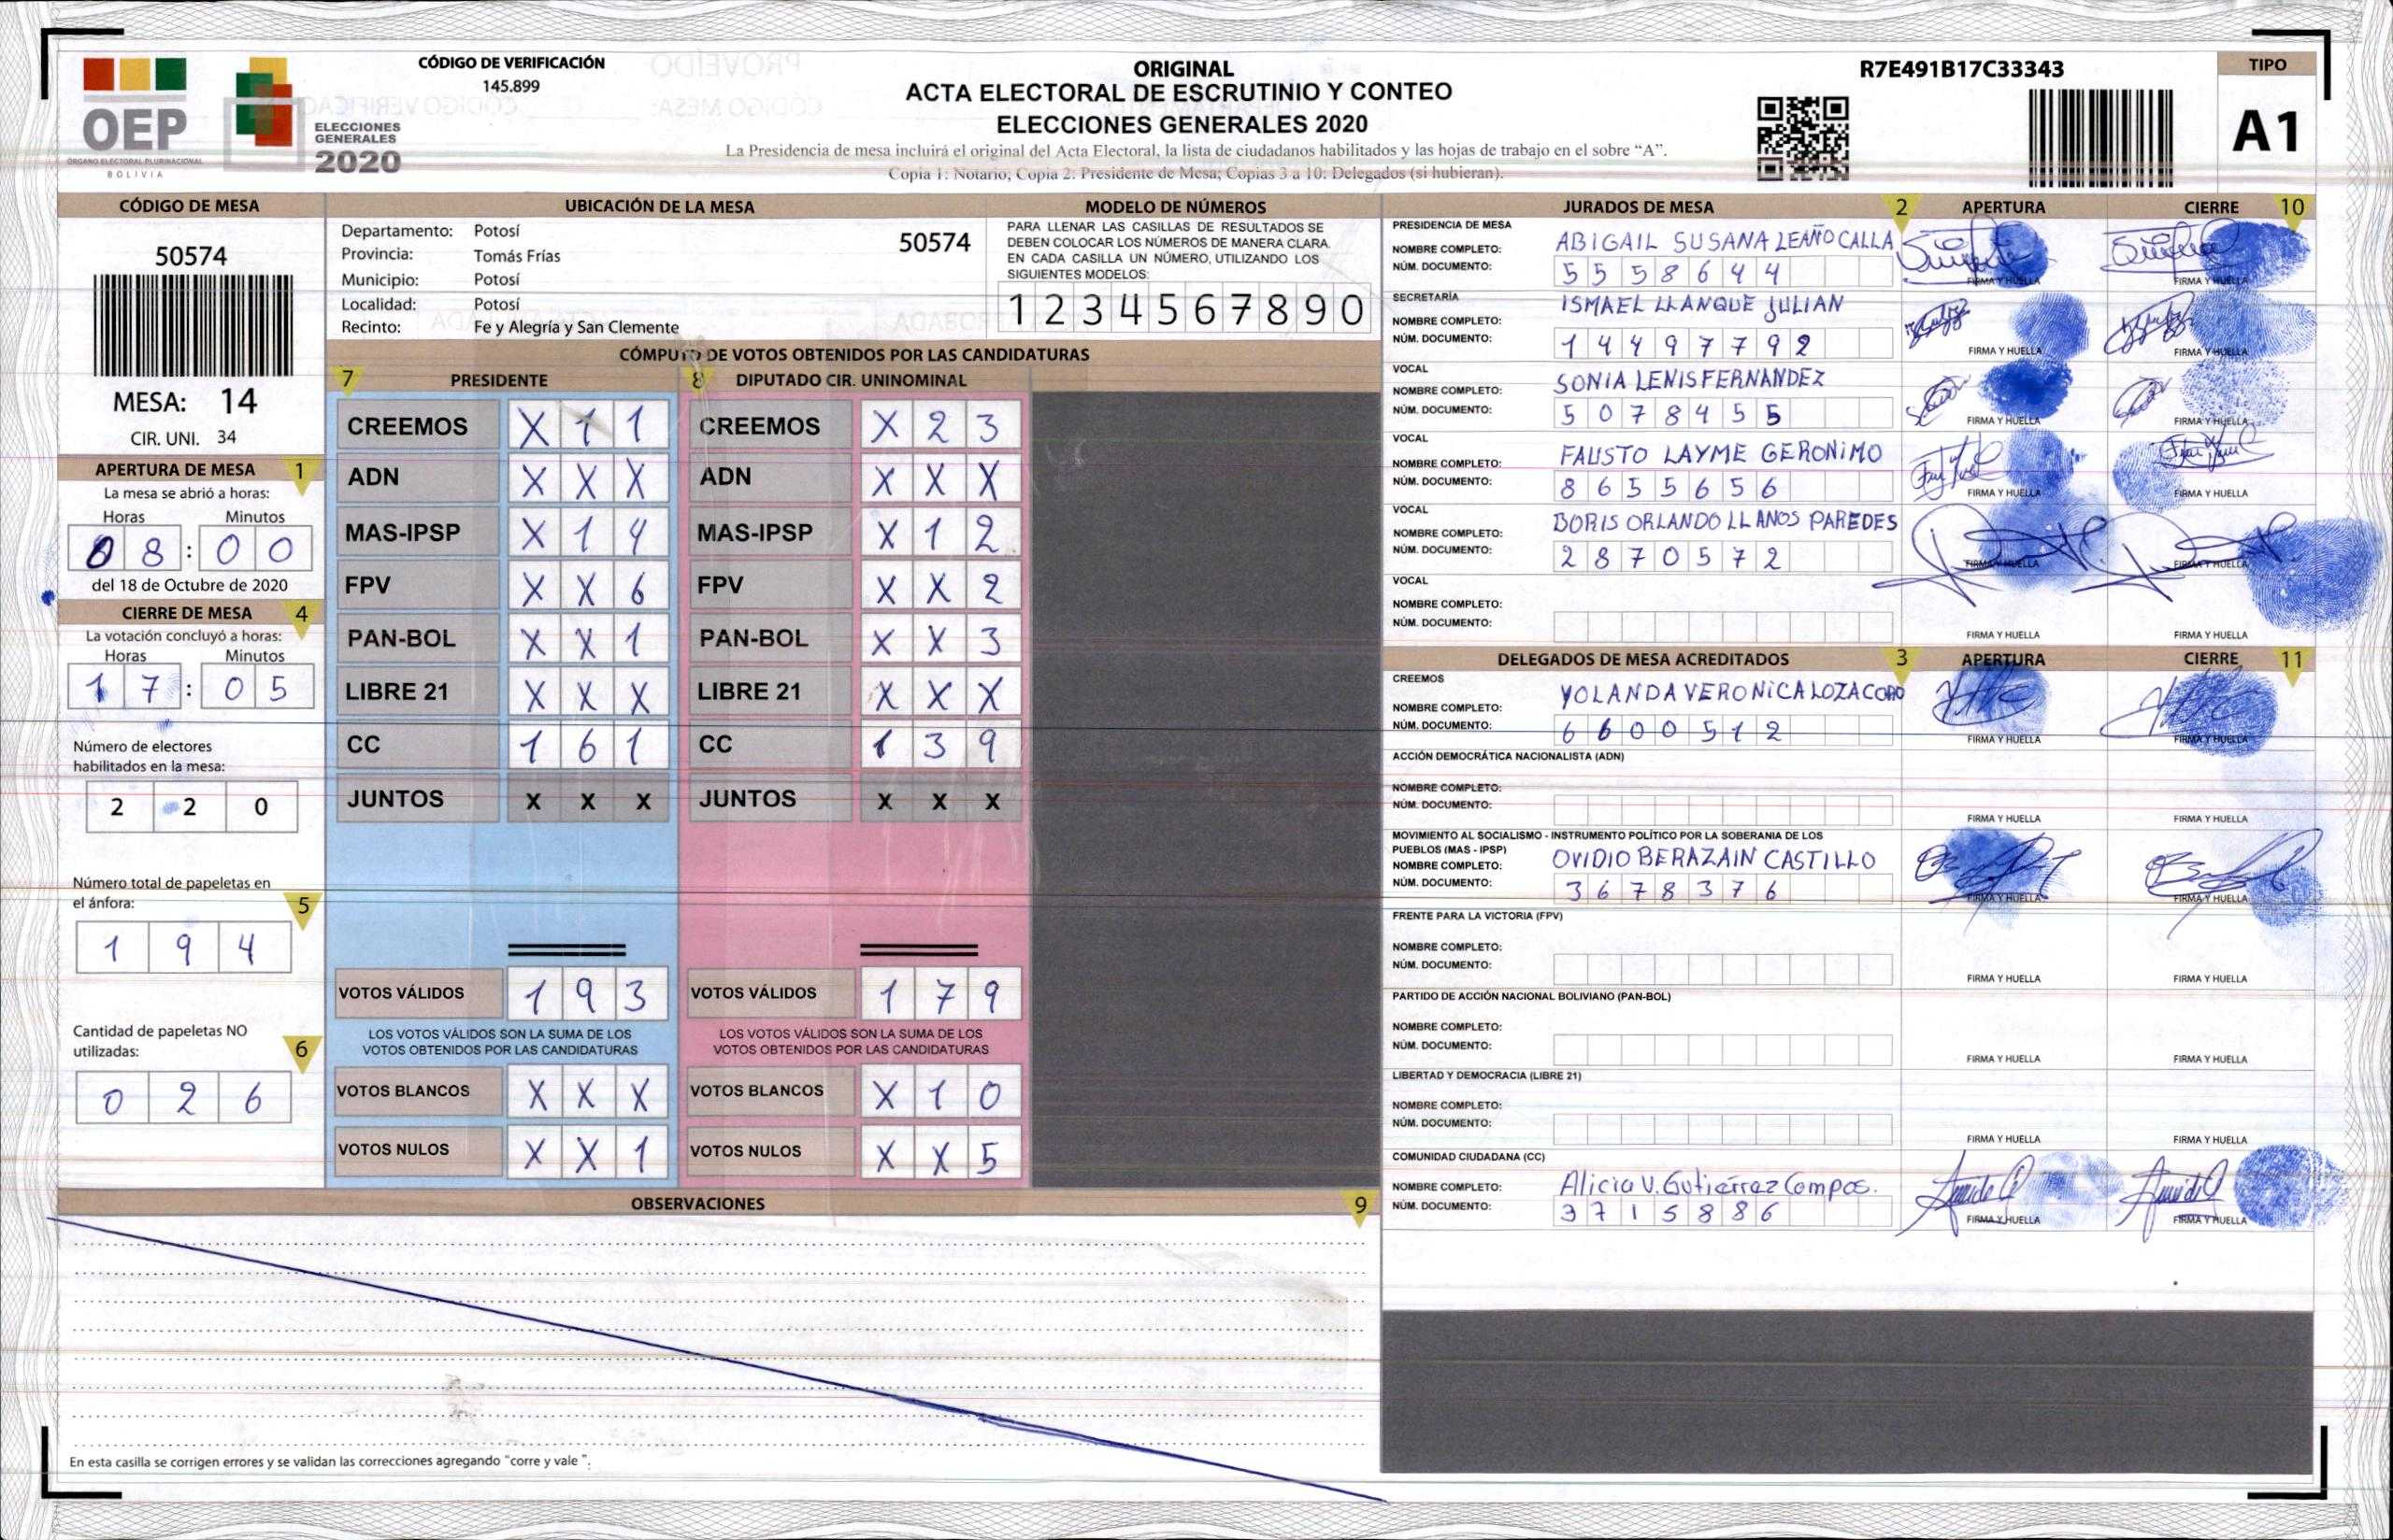 OEP
ÓRGANO ELECTORAL PLURINACIONAL
BOLIVIA
ELECCIONES
GENERALES
2020
CÓDIGO DE VERIFICACIÓN
145.899
ORIGINAL
ACTA ELECTORAL DE ESCRUTINIO Y CONTEO
ELECCIONES GENERALES 2020
La Presidencia de mesa incluirá el original del Acta Electoral, la lista de ciudadanos habilitados y las hojas de trabajo en el sobre “A”.
Copia 1: Notario; Copia 2: Presidente de Mesa; Copias 3 a 10: Delegados (si hubieran).
R7E491B17C33343
TIPO
A1
CÓDIGO DE MESA
50574
MESA: 14
CIR. UNI. 34
APERTURA DE MESA 1
La mesa se abrió a horas:
Horas Minutos
0 8 : 0 0
del 18 de Octubre de 2020
CIERRE DE MESA 4
La votación concluyó a horas:
Horas Minutos
1 7 : 0 5
Número de electores
habilitados en la mesa:
2 2 0
Número total de papeletas en
el ánfora: 5
1 9 4
Cantidad de papeletas NO
utilizadas: 6
0 2 6
UBICACIÓN DE LA MESA
Departamento: Potosí
50574
Provincia: Tomás Frías
Municipio: Potosí
Localidad: Potosí
Recinto: Fe y Alegría y San Clemente
MODELO DE NÚMEROS
PARA LLENAR LAS CASILLAS DE RESULTADOS SE
DEBEN COLOCAR LOS NÚMEROS DE MANERA CLARA.
EN CADA CASILLA UN NÚMERO, UTILIZANDO LOS
SIGUIENTES MODELOS:
1 2 3 4 5 6 7 8 9 0
CÓMPUTO DE VOTOS OBTENIDOS POR LAS CANDIDATURAS
7 PRESIDENTE 8 DIPUTADO CIR. UNINOMINAL
CREEMOS X 1 1 CREEMOS X 2 3
ADN X X X ADN X X X
MAS-IPSP X 1 4 MAS-IPSP X 1 2
FPV X X 6 FPV X X 2
PAN-BOL X X 1 PAN-BOL X X 3
LIBRE 21 X X X LIBRE 21 X X X
CC 1 6 1 CC 1 3 9
JUNTOS X X X JUNTOS X X X
VOTOS VÁLIDOS 1 9 3 VOTOS VÁLIDOS 1 7 9
LOS VOTOS VÁLIDOS SON LA SUMA DE LOS LOS VOTOS VÁLIDOS SON LA SUMA DE LOS
VOTOS OBTENIDOS POR LAS CANDIDATURAS VOTOS OBTENIDOS POR LAS CANDIDATURAS
VOTOS BLANCOS X X X VOTOS BLANCOS X 1 0
VOTOS NULOS X X 1 VOTOS NULOS X X 5
OBSERVACIONES 9
En esta casilla se corrigen errores y se validan las correcciones agregando “corre y vale ”.
JURADOS DE MESA 2 APERTURA CIERRE 10
PRESIDENCIA DE MESA
NOMBRE COMPLETO: ABIGAIL SUSANA LEAÑO CALLA
NÚM. DOCUMENTO: 5 5 5 8 6 4 4
FIRMA Y HUELLA FIRMA Y HUELLA
SECRETARÍA
NOMBRE COMPLETO: ISMAEL LLANQUE JULIAN
NÚM. DOCUMENTO: 1 4 4 9 7 7 9 2
FIRMA Y HUELLA FIRMA Y HUELLA
VOCAL
NOMBRE COMPLETO: SONIA LENIS FERNANDEZ
NÚM. DOCUMENTO: 5 0 7 8 4 5 5
FIRMA Y HUELLA FIRMA Y HUELLA
VOCAL
NOMBRE COMPLETO: FAUSTO LAYME GERONIMO
NÚM. DOCUMENTO: 8 6 5 5 6 5 6
FIRMA Y HUELLA FIRMA Y HUELLA
VOCAL
NOMBRE COMPLETO: BORIS ORLANDO LLANOS PAREDES
NÚM. DOCUMENTO: 2 8 7 0 5 7 2
FIRMA Y HUELLA FIRMA Y HUELLA
VOCAL
NOMBRE COMPLETO:
NÚM. DOCUMENTO:
FIRMA Y HUELLA FIRMA Y HUELLA
DELEGADOS DE MESA ACREDITADOS 3 APERTURA CIERRE 11
CREEMOS
NOMBRE COMPLETO: YOLANDA VERONICA LOZA CORO
NÚM. DOCUMENTO: 6 6 0 0 5 1 2
FIRMA Y HUELLA FIRMA Y HUELLA
ACCIÓN DEMOCRÁTICA NACIONALISTA (ADN)
NOMBRE COMPLETO:
NÚM. DOCUMENTO:
FIRMA Y HUELLA FIRMA Y HUELLA
MOVIMIENTO AL SOCIALISMO - INSTRUMENTO POLÍTICO POR LA SOBERANIA DE LOS
PUEBLOS (MAS - IPSP)
NOMBRE COMPLETO: OVIDIO BERAZAIN CASTILLO
NÚM. DOCUMENTO: 3 6 7 8 3 7 6
FIRMA Y HUELLA FIRMA Y HUELLA
FRENTE PARA LA VICTORIA (FPV)
NOMBRE COMPLETO:
NÚM. DOCUMENTO:
FIRMA Y HUELLA FIRMA Y HUELLA
PARTIDO DE ACCIÓN NACIONAL BOLIVIANO (PAN-BOL)
NOMBRE COMPLETO:
NÚM. DOCUMENTO:
FIRMA Y HUELLA FIRMA Y HUELLA
LIBERTAD Y DEMOCRACIA (LIBRE 21)
NOMBRE COMPLETO:
NÚM. DOCUMENTO:
FIRMA Y HUELLA FIRMA Y HUELLA
COMUNIDAD CIUDADANA (CC)
NOMBRE COMPLETO: Alicia V. Gutiérrez Campos.
NÚM. DOCUMENTO: 3 7 1 5 8 8 6
FIRMA Y HUELLA FIRMA Y HUELLA